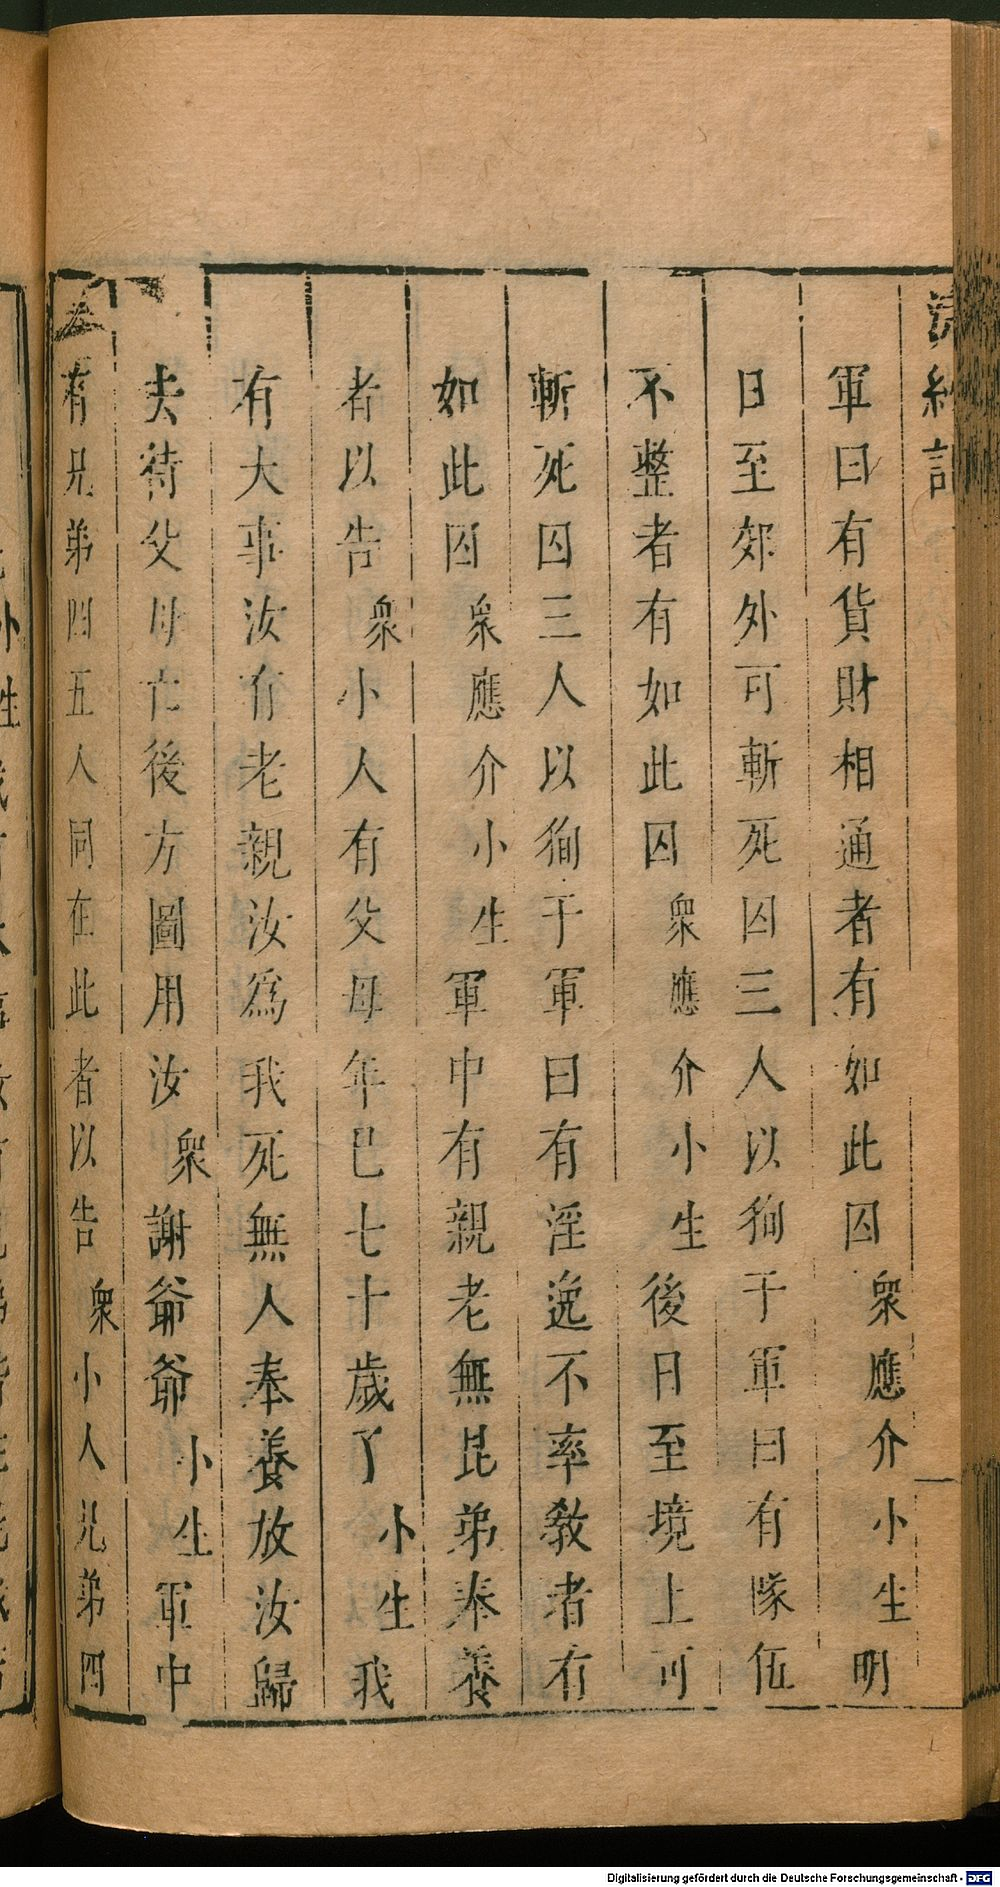 浣紗記
軍曰有貨財相通者有如此囚衆應介小生明
日至郊外可斬死囚三人以狥于軍曰有隊伍
不整者有如此囚衆應介小生後日至境上可
斬死囚三人以狥于軍曰有淫逸不率教者有
如此囚衆應介小生軍中有親老無昆弟奉養
者以告衆小人有父母年巳七十歲了小生我
有大事汝有老親汝為我死無人奉養放汝歸
去待父母亡後方圖用汝衆謝爺爺小生軍中
有兄弟四五人同在此者以告衆小人兄弟四
Digitalisierung gefördert durch die Deutsche Forschungsgemeinschaft - DFG